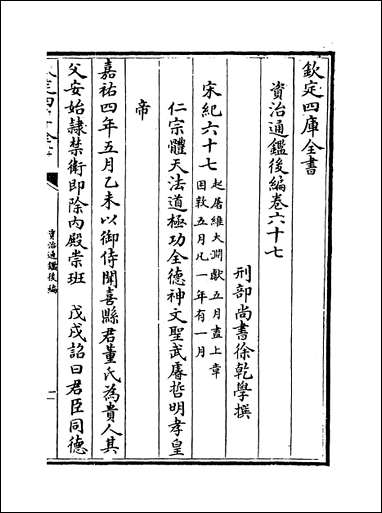 欽定四庫全書
資治通鑑後編卷六十七
刑部尚書徐乾學撰
宋紀六十七起屠維大淵獻五月盡上章
困敦五月凡一年有一月
仁宗體天法道極功全德神文聖武睿哲明孝皇
帝
嘉祐四年五月乙未以御侍聞喜縣君董氏為貴人其
父安始隸禁衛即除內殿崇班 戊戌詔曰君臣同德
資治通鑑後編